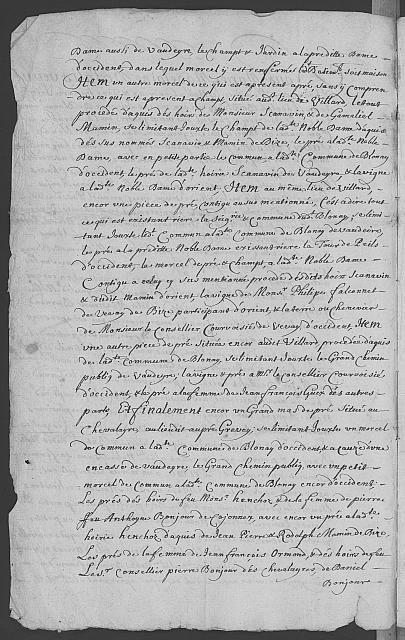 Dame aussi de Vaudeyre, le champt & Jardin a la preditte Dame
d'occident, dans lequel morcel y est renfermé le Batiment soit maison
Item un autre morcel de ce qui est apresent apré, sans y compren
dre ce qui est apresent a champt, situé aud. lieu de Villard, le tout
procedé daquis des hoirs de Monsieur Scanavin & de Gamaliel
Mamin, se limitant Jouxte le champt de lad.te Noble Dame daquis
dés sus nommés Scanavin & Mamin de Bize, le pré a lad.te Noble
Dame, avec en petite partie le commun a lad.te Commune de Blonay
d'occident, le pré de lad.te hoirie Scanavin de Vaudeyre & la vigne
a lad.te Noble Dame d'orient, Item au même lieu de Villard,
encor vne piece de pré contigu au sus mentionné, C'est a dire tout
ce qui est existant riere la Seig.rie & Commune dud. Blonay, se limi
tant Jouxte led. Commun a lad.te Commune de Blonay de vaudeire,
les prés a la preditte Noble Dame existant riere la Tour de Peils
d'occident, le morcel de pré & champt a lad.te Noble Dame
Contigu a celuy cy sus mentionné procedé desdits hoirs Scanavin
& dudit Mamin d'orient, la vigne de Mons.r Philipe falconnet
de Vevay de Bize participant d'orient, & la terre ou chenevier
de Monsieur le Consellier Couvreu de Vevay d'occident Item
vne autre piece de pré située encor audit Villard, procedée daquis
de lad.te Commune de Blonay, se limitant Jouxte le Grand Chemin
publiq de Vaudeyre, la vigne & prés a M.r le Consellier Couvreu
d'occident, & le pré a la femme de Jean françois Guex dés autres
parts, Et finalement encor vn Grand mas de pré situé au
Chevalayre, au lieu dit au pré Grevey, se limitant Jouxte vn morcel
de Commun a lad.te Commune de Blonay d'occident & a cause d'vne
encassée de vaudeyre le Grand Chemin publiq, avec vn petit
morcel de Commun a lad.te Commune de Blonay encor d'occident,
Les prés dés hoirs du feu Mons.r henchoz, & de la femme de pierre
ffeu Anthoyne Bonjour de Cojonnex, avec encor vn pré a lad.te
hoirie henchoz daquis de Jean Pierre & Rodolph Mamin de Bize,
Les prés de la femme de Jean françois Ormond, & dés hoirs du feu
Le S.r Consellier pierre Bonjour dés Chevalayres, de Daniel
Bonjour